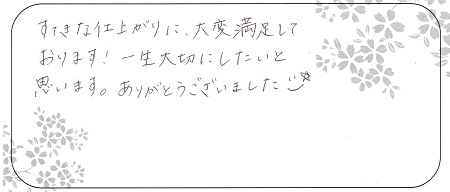 すてきな仕上がりに、大変満足して
おります！一生大切にしたいと
思います。ありがとうございました